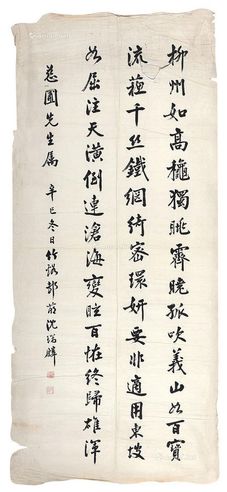 柳州如高穐獨眺霽晚孤吹義山如百寶
流蘓千丝鐵網綺密環妍要非適用東坡
如屈注天潢倒連滄海變眩百怪終歸雄渾
先生属 辛巳冬日竹溪邨翁沈瑞麟